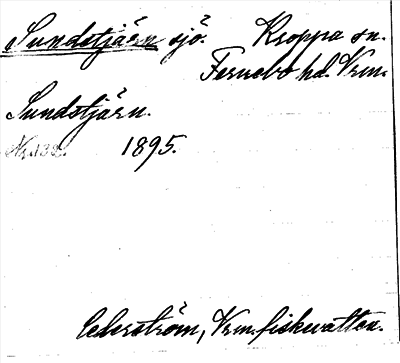 Sundstjärn sjö. Kroppa sn.
Fernebo hd. Vrm.
Sundstjärn.
Nr. 132. 1895.
Cederström, Vrm. fiskevatten.